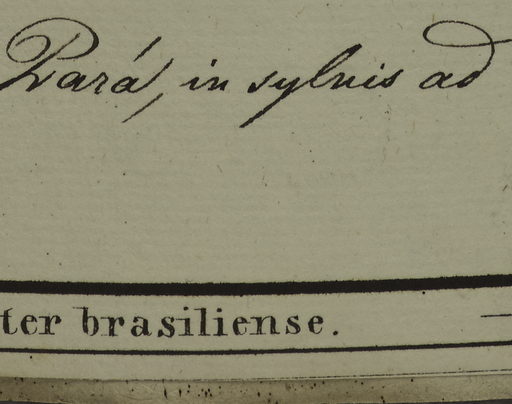 Pará, in sylvis ad
ter brasiliense.